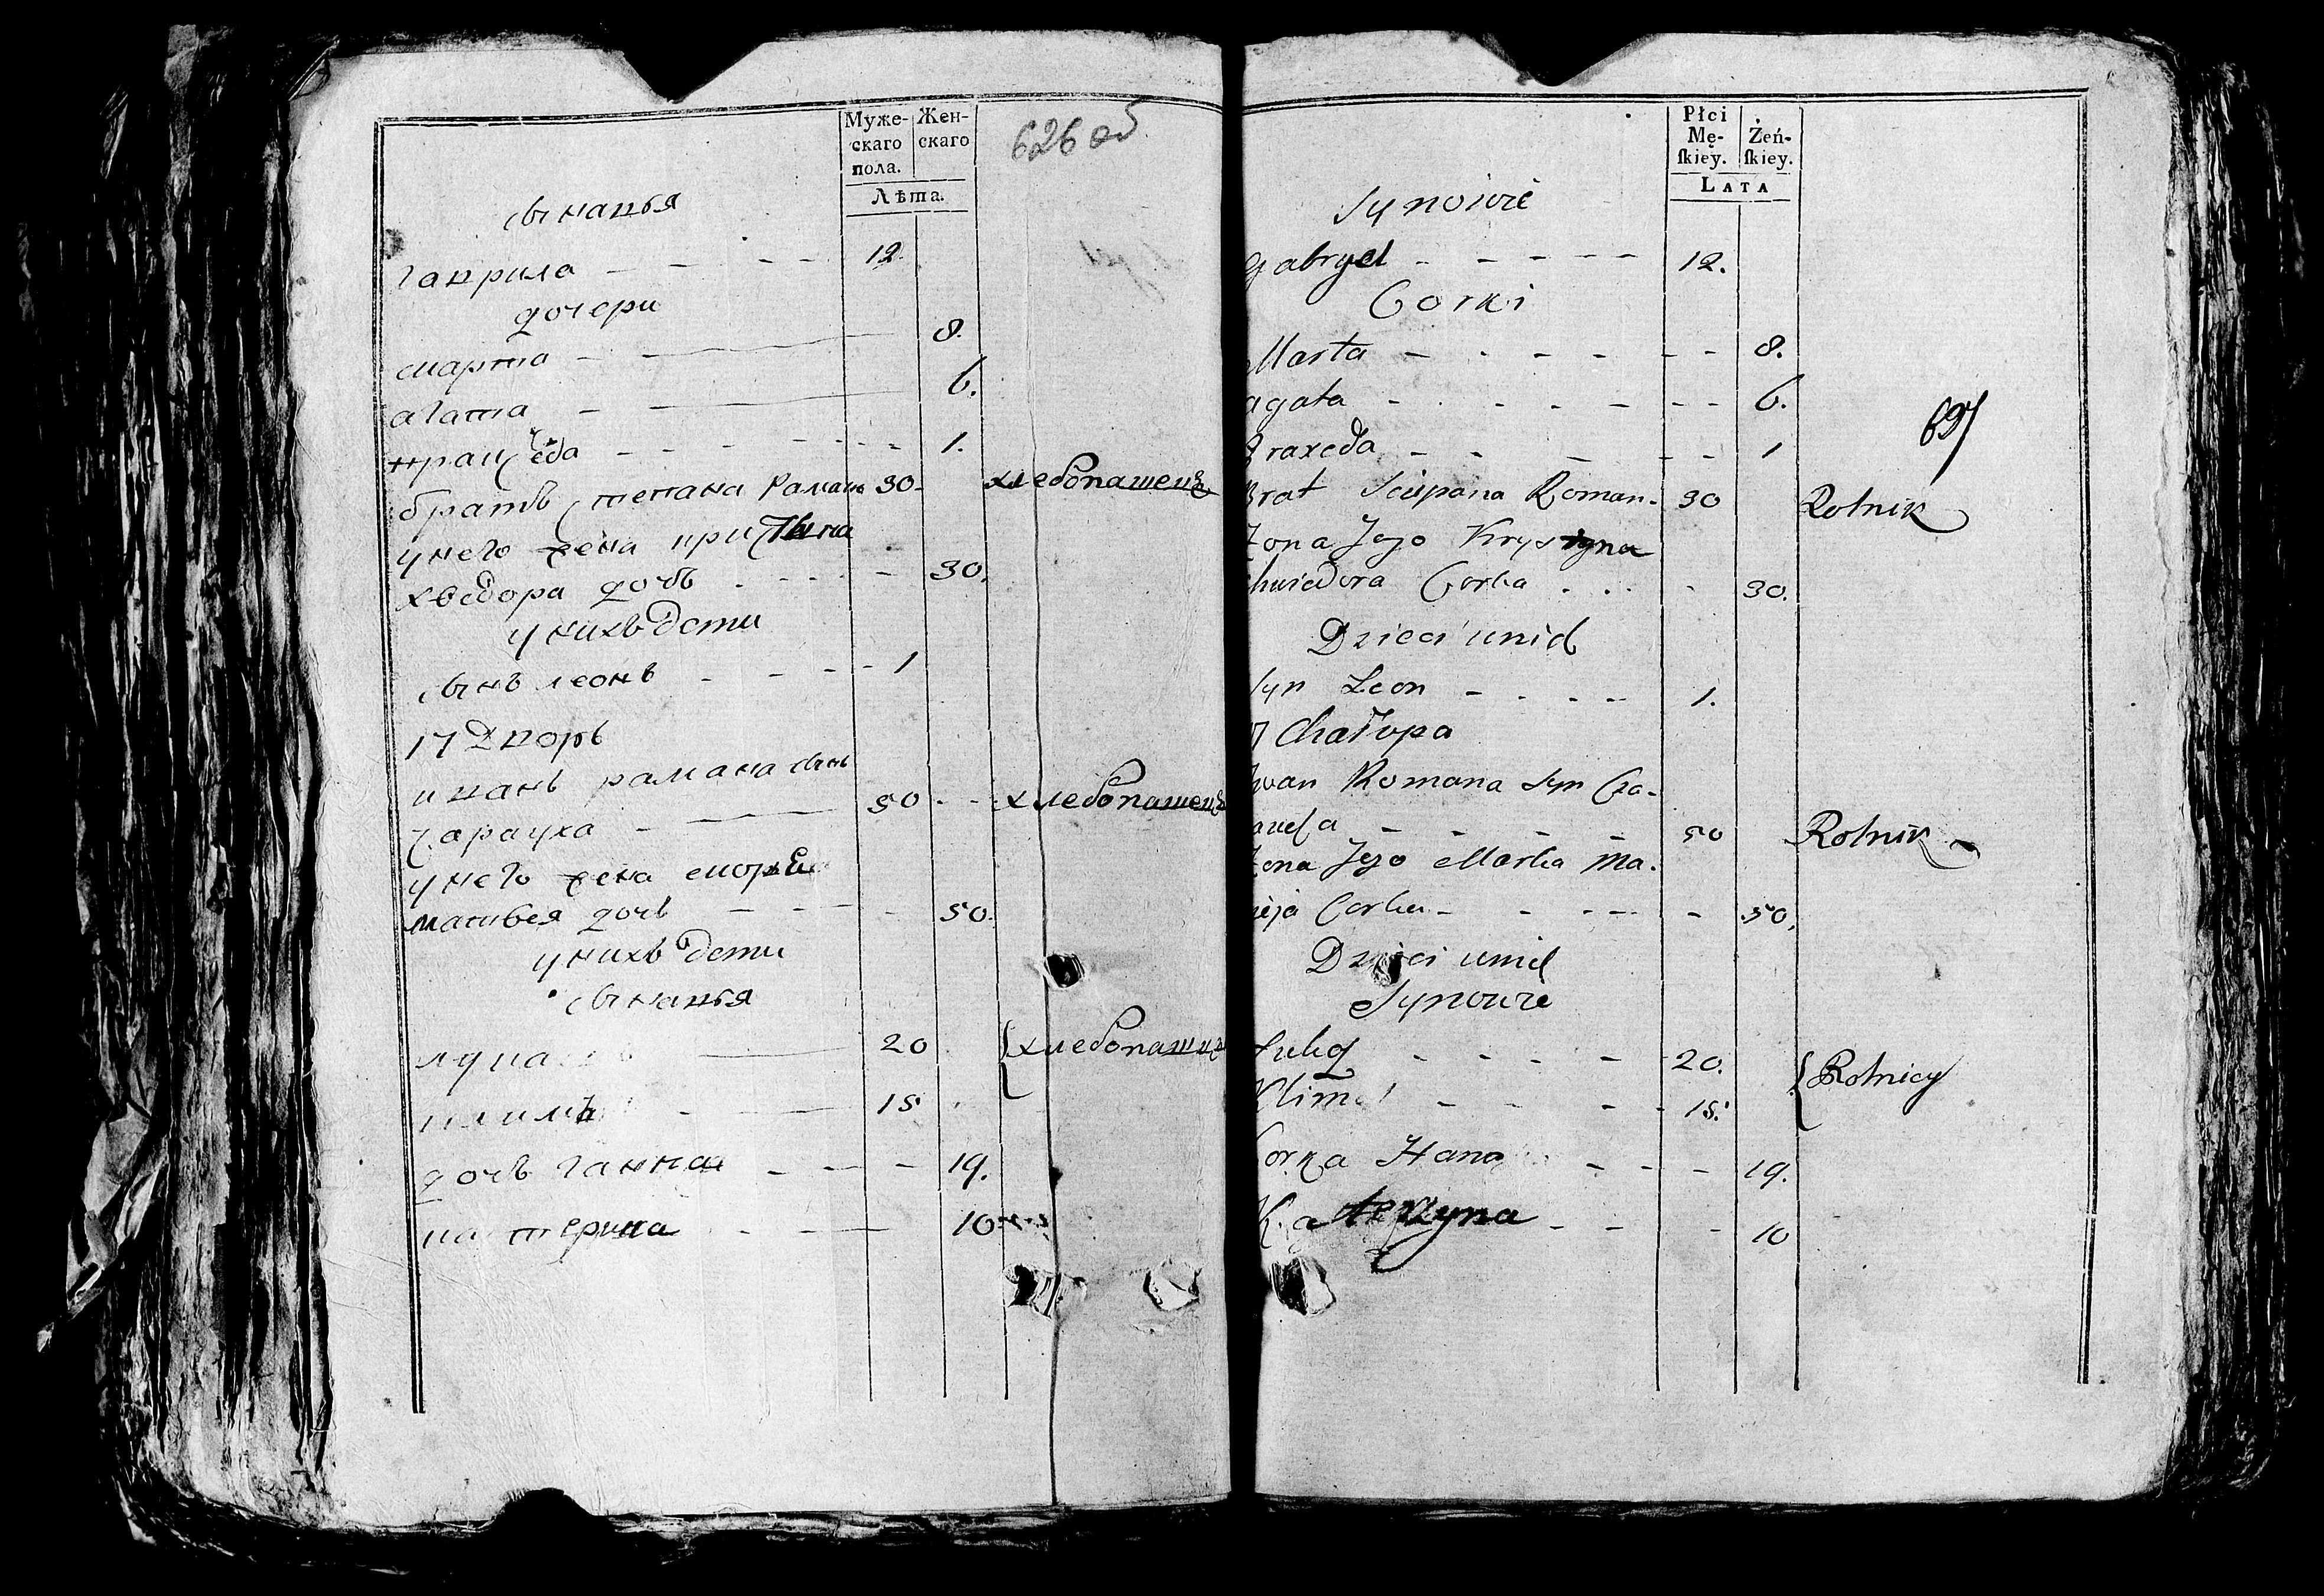 Муже-
скаго
пола.
Жен-
скаго
Лѣта.
626 об
сынавья
гаврила - - - - 12.
дочери
марта - - 8.
агата - - 6.
- - - 1.
братъ степана Раман 30. хлебопашецъ
у него жена кристына
хведора дочь - - - 30.
у нихъ дети
сынъ леонъ - - - - 1
17 Дворъ
иванъ рамана сынъ
- 50 - - хлебопашецъ
у него жена
матвея дочь - - - 50.
у нихъ дети
сынавья
лука 20 хлебопашцы
климъ - - 15
дочь ганна - - - 19.
катерина - - - 10
Płci
Mę-
ſkiey.
Żeń-
ſkiey.
LATA
Synowie
Gabryel - - - - - 12.
Corki
Marta - - - - - - 8.
agata - - - - - - 6.
raxeda - - - - - 1
69
rat Sciepana Roman - 30 Rolnik
Zona Jego Krystyna
hwiedora Corka . . . - 30.
Dzieci unich
Syn Leon - - - - - 1.
7 Chałupa
Iwan Romana Syn
- - - - 50 Rolnik
Zona Jego Marka Ma-
ieja Corka - - - - - 50.
Dzieci unich
Synowie
- - - - 20. Rolnicy
Klim - - - - 15.
orka Hana - - - 19.
Katerzyna - - - 10